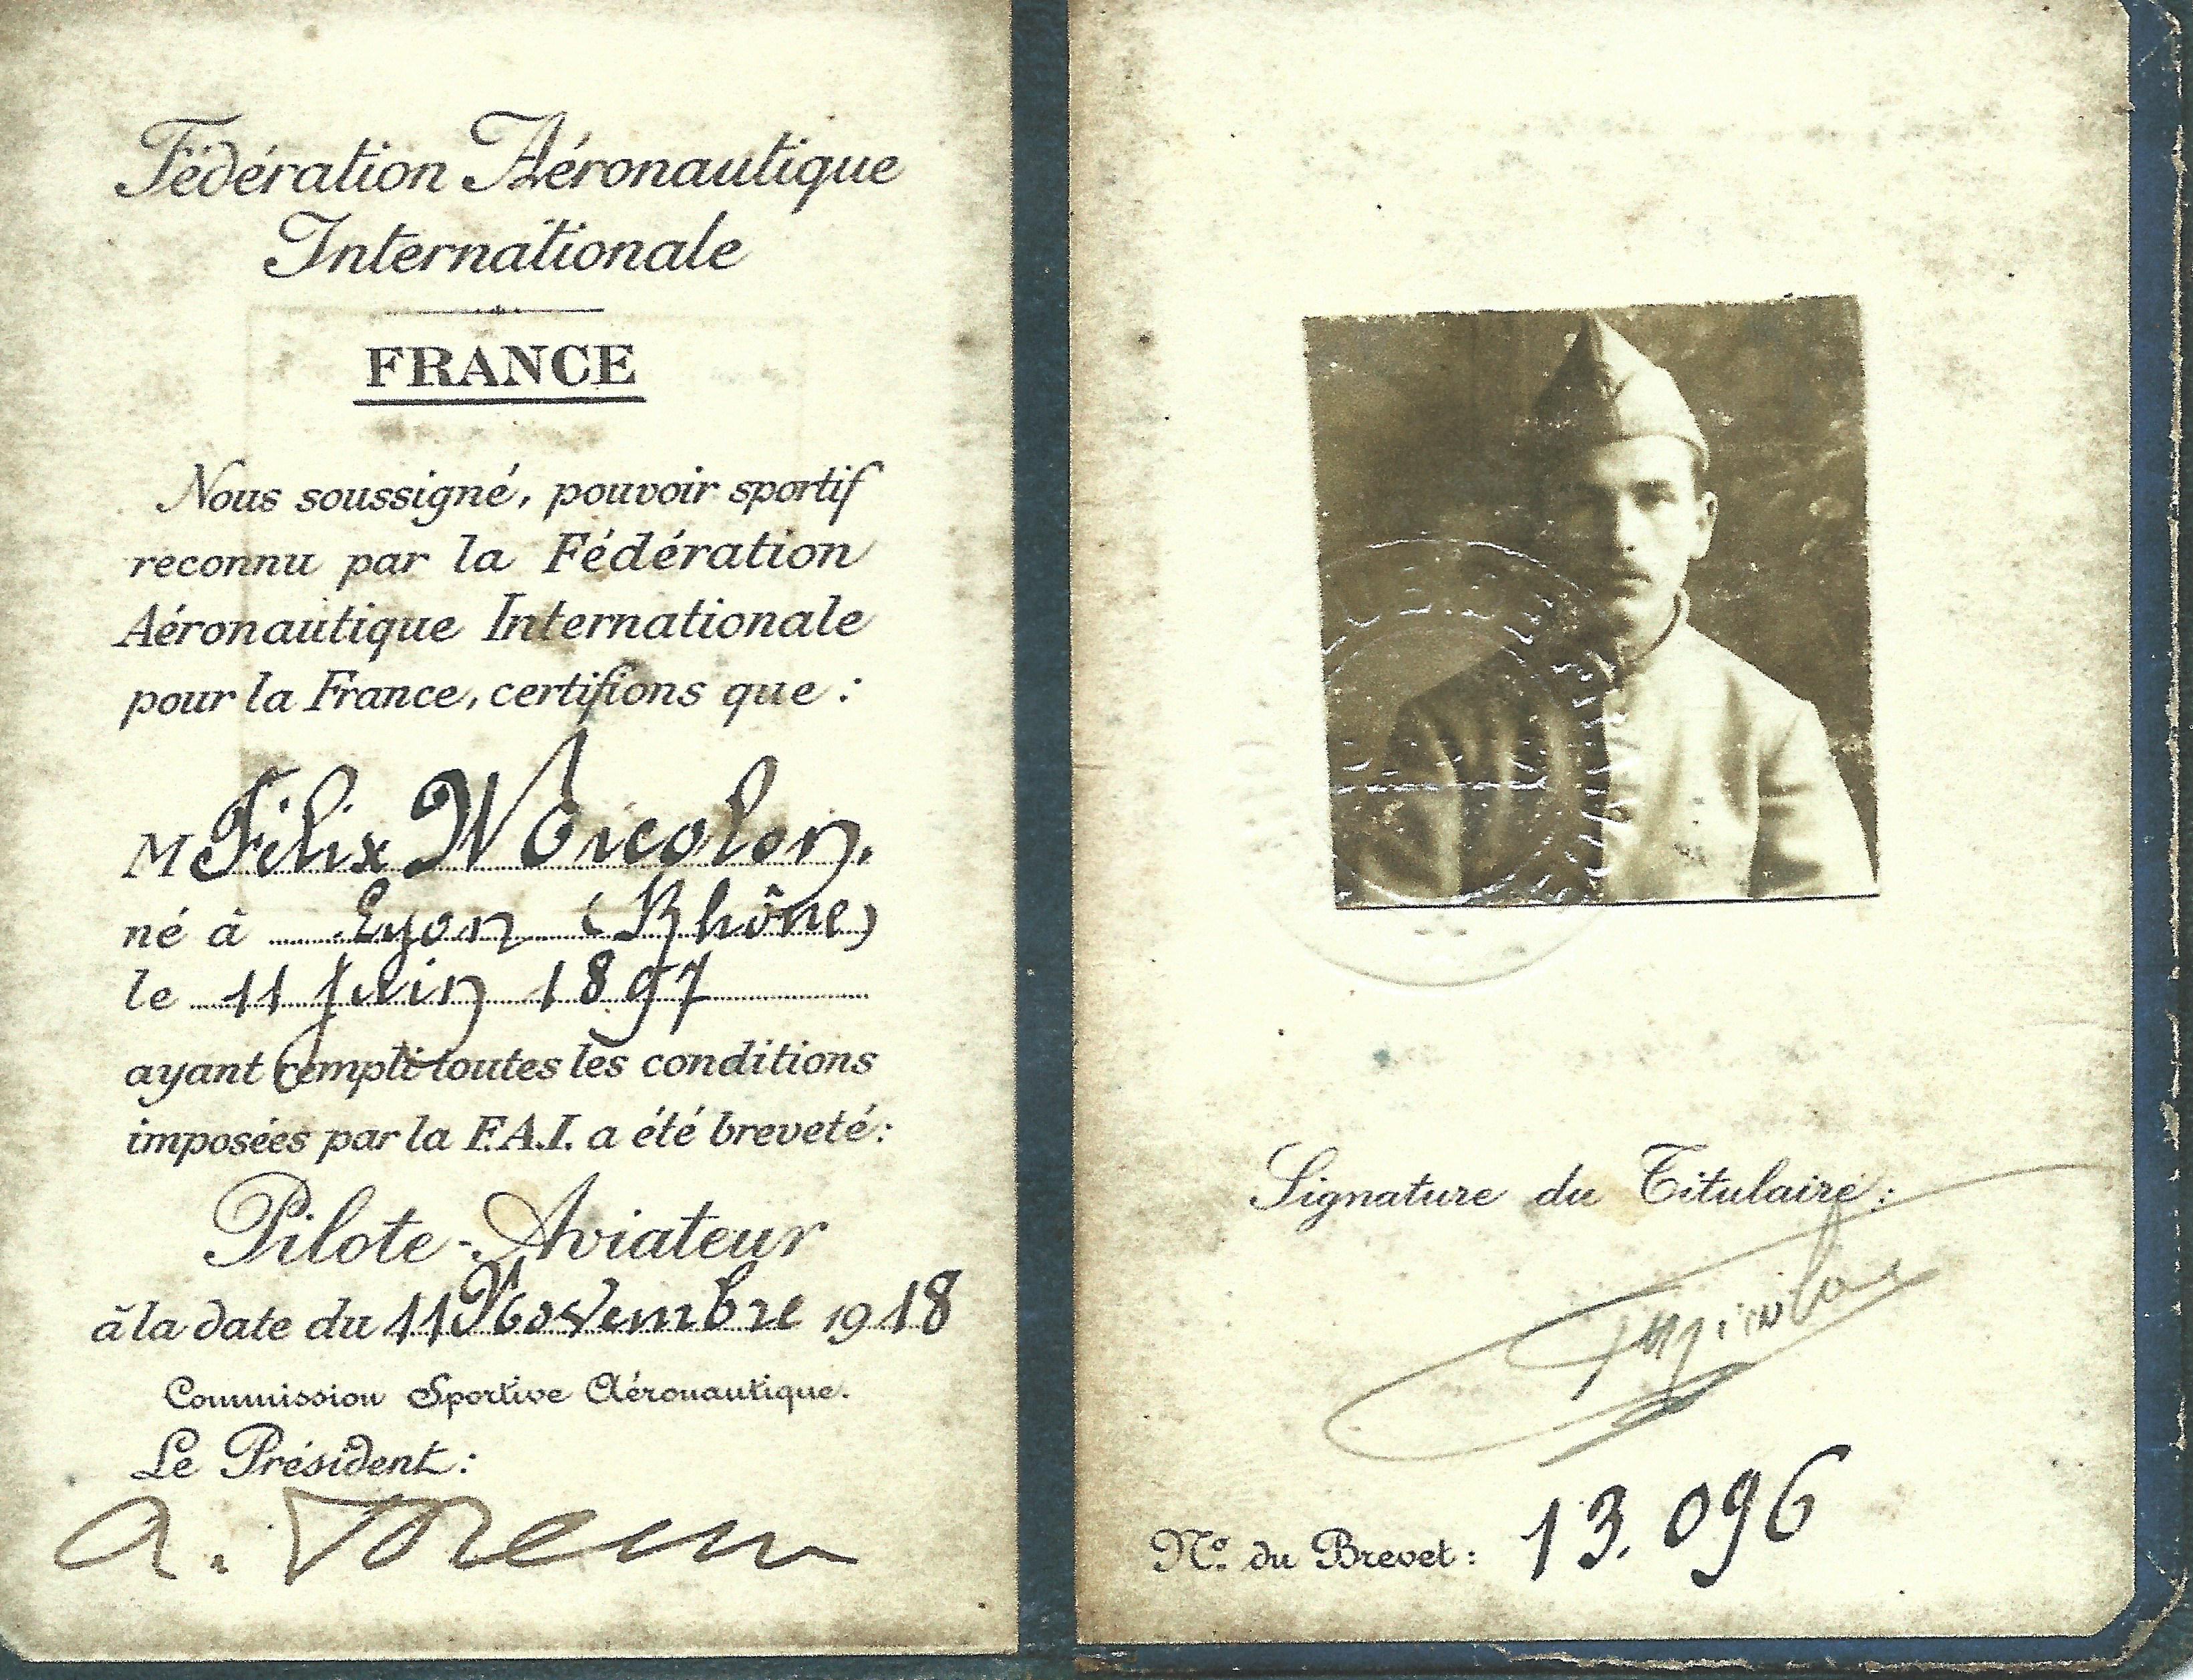 Fédération Aéronautique
Internationale
FRANCE
Nous soussigné, pouvoir sportif
reconnu par la Fédération
Aéronautique Internationale
pour la France, certifions que :
M Félix
né à Lyon (Rhône)
le 11 Juin 1897
ayant rempli toutes les conditions
imposées par la F.A.I. a été breveté :
Pilote-Aviateur
à la date du 11 Novembre 1918
Commission Sportive Aéronautique.
Le Président :
Signature du Titulaire :
No du Brevet : 13.096